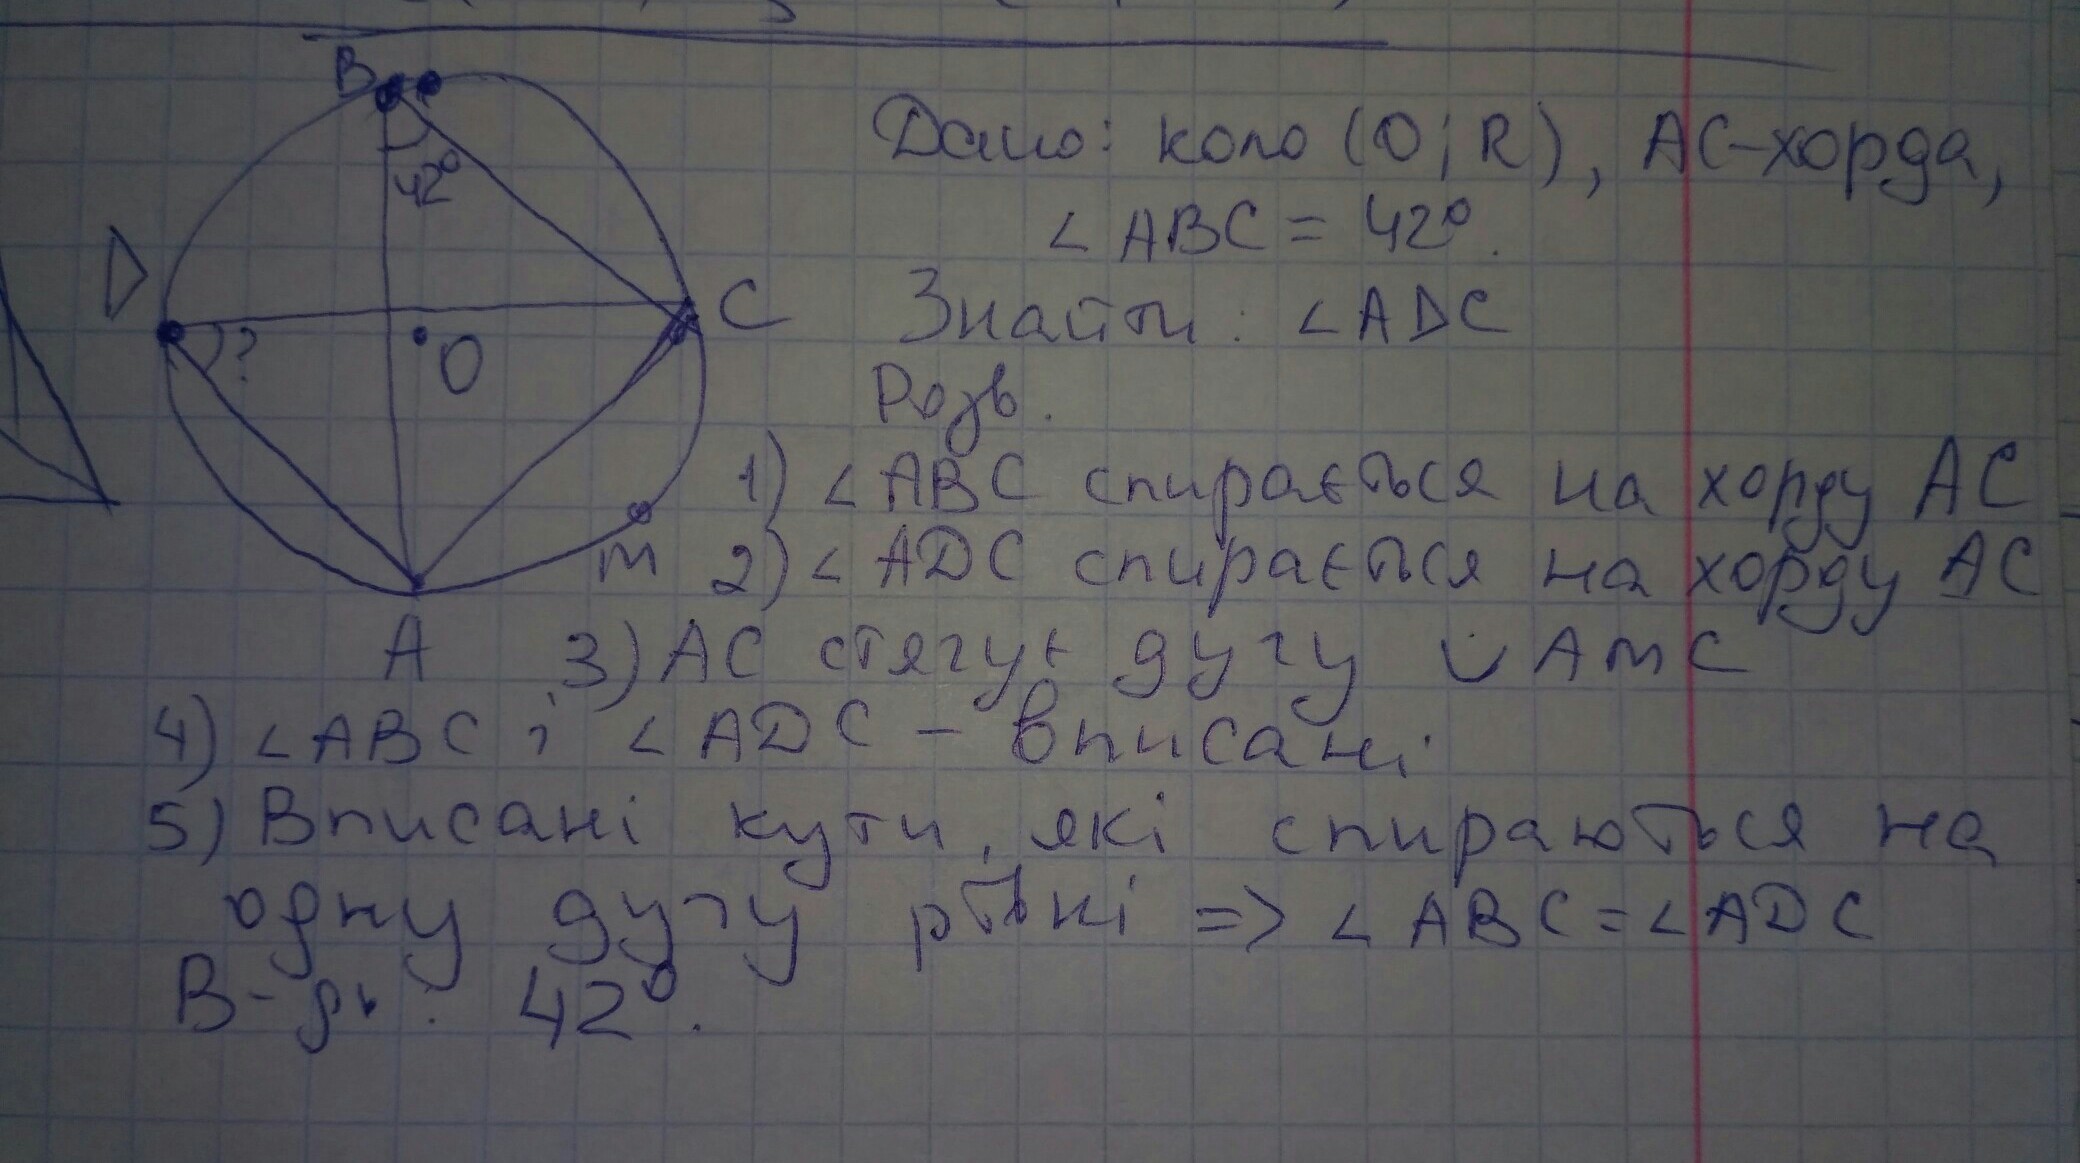 B
42°
D
?
O
C
m
A
Дано: коло (O; R), AC-хорда,
∠ABC = 42°.
Знайти: ∠ADC
Розв.
1) ∠ABC спирається на хорду AC
2) ∠ADC спирається на хорду AC
3) AC стягує дугу ∪ AmC
4) ∠ABC і ∠ADC - вписані
5) Вписані кути, які спираються на
одну дугу рівні => ∠ABC = ∠ADC
В-дь: 42°.